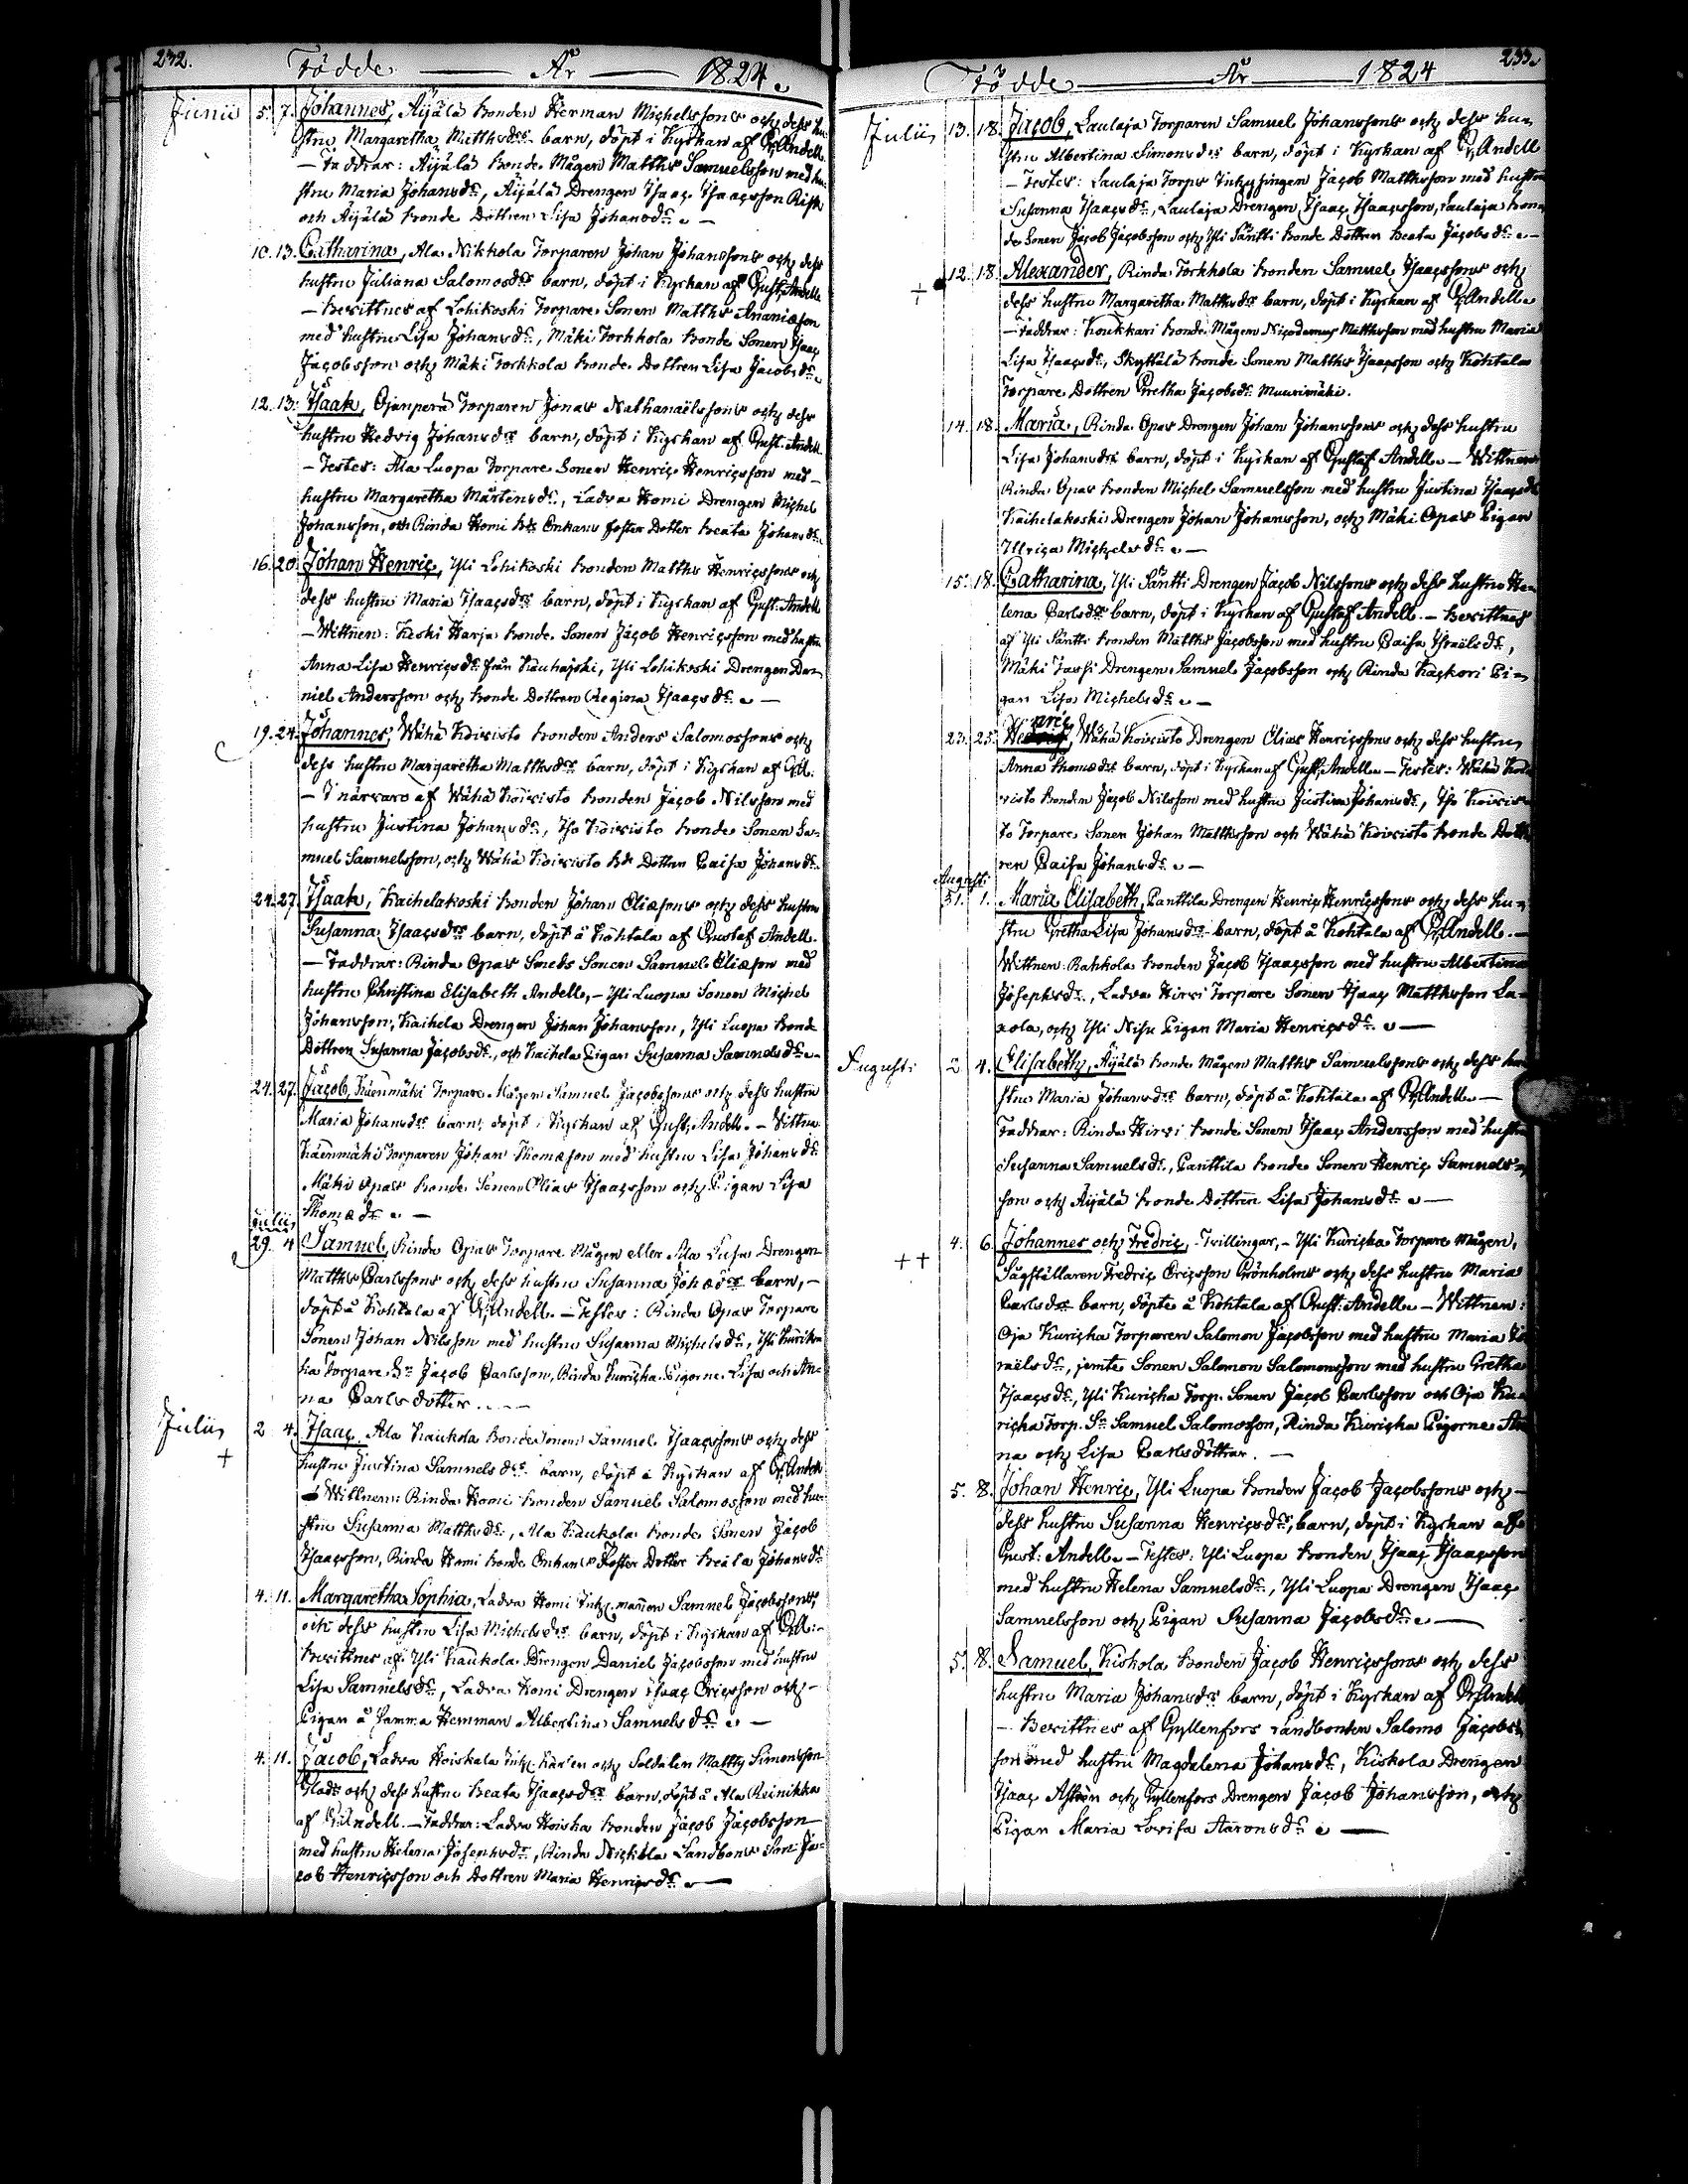 232.
Födde — År — 1824.
Junii 5. 7. Johannes, Äijälä bonden Herman Michelssons och dess hu-
stru Margaretha Matthsdrs barn, döpt i Kyrkan af G. Andell.
— Faddrar: Äijälä bonde Mågen Matths Samuelsson med hu-
stru Maria Johansdr, Äijälä Drengen Isaac Isaacsson Risku
och Äijälä bonde Dottren Lisa Johansdr. —
10. 13. Catharina, Ala Nikkola Torparen Johan Johanssons och dess
hustru Juliana Salomosdrs barn, döpt i Kyrkan af Gust. Andell
— Bevittnes af Lohikoski Torpare Sonen Matths Ananiæson
med hustru Lisa Johansdr, Mäki Torkkola bonde Sonen Isaac
Jacobsson och Mäki Torkkola bonde Dottren Lisa Jacobsdr.
12. 13. Isaak, Ojanperä Torparen Jonas Nathanaëlssons och dess
hustru Hedvig Johansdrs barn, döpt i Kyrkan af Gust. Andell.
— Testes: Ala Luopa Torpare Sonen Henric Henricsson med
hustru Margaretha Mårtensdr, Ladva Komi Drengen Michel
Johansson, och Rinda Komi Bde Enkans foster Dotter Beata Johansdr.
16. 20. Johan Henric, Yli Lohikoski bonden Matths Henricssons och
dess hustru Maria Isaacsdrs barn, döpt i Kyrkan af Gust. Andell
— Wittnen: Keski Harja bonde Sonen Jacob Henricsson med hustru
Anna Lisa Henricsdr från Kauhajoki, Yli Lohikoski Drengen Da-
niel Andersson och bonde Dottren Regina Isaacsdr. —
19. 24. Johannes, Wähä Koivisto bonden Anders Salomossons och
dess hustru Margaretha Matthsdrs barn, döpt i Kyrkan af GA.
— I närvaro af Wähä Koivisto bonden Jacob Nilsson med
hustru Justina Johansdr, Iso Koivisto bonde Sonen Sa-
muel Samuelsson, och Wähä Koivisto bde Dottren Caisa Johansdr.
24. 27. Isaak, Kaihelakoski bonden Johan Eliæsons och dess hustru
Susanna Isaacsdrs barn, döpt å Kohtala af Gustaf Andell.
— Faddrar: Rinda Opas Smeds Sonen Samuel Eliæson med
hustru Christina Elisabeth Andell, — Yli Luopa Sonen Michel
Johansson, Kaihela Drengen Johan Johansson, Yli Luopa Bonde
Dottren Susanna Jacobsdr, och Kaihela Pigan Susanna Samuelsdr. —
24. 27. Jacob, Käenmäki Torpare Mågen Samuel Jacobssons och dess hustru
Maria Johansdrs barn, döpt i Kyrkan af Gust. Andell. — Vittna
Käenmäki Torparen Johan Thomæson med hustru Lisa Johansdr
Mäki Opas bonde Sonen Elias Isaacsson och Pigan Lisa
Thomædr. —
Julii
29. 4 Samuel, Rinda Opas Torpare Mågen eller Ala Drengen
Matths Carlssons och dess hustru Susanna Johædrs barn, —
döpt å Kohtala af G. Andell. — Testes: Rinda Opas Torpare
Sonen Johan Nilsson med hustru Susanna Michelsdr, Yli Kurik-
ka Torpare Sn Jacob Carlsson, Rinda Kuricka Pigorne Lisa och An-
na Carlsdotter. —
Julii 2 4. Isaac, Ala Kaukola Bonde Sonen Samuel Isaacssons och dess
+ hustru Justina Samuelsdrs barn, döpt i Kyrkan af G. Andell
— Wittnen: Rinda Komi bonden Samuel Salomosson med hu-
stru Susanna Matthsdr, Ala Kaukola bonde Sonen Jacob
Isaacsson, Rinda Komi bonde Enkans Foster Dotter Beata Johansdr
4. 11. Margaretha Sophia, Ladva Komi Inhs. mannen Samuel Jacobssons,
och dess hustru Lisa Michelsdrs barn, döpt i Kyrkan af GA. —
Bevittnes af Yli Kaukola Drengen Daniel Jacobsson med hustru
Lisa Samuelsdr, Ladva Komi Drengen Isaac Ericsson och —
Pigan å samma Hemman Albertina Samuelsdr. —
4. 11. Jacob, Ladva Koiskala Inhs. och Soldaten Matths Simonsson
Glads och dess hustru Beata Isaacsdrs barn, döpt å Ala Reinikka
af G. Andell. — Faddrar: Ladva bonden Jacob Jacobsson
med hustru Helena Josephsdr, Rinda Landbons Son Ja-
cob Henricsson och Dottren Maria Henricsdr. —
233.
Födde — År — 1824
Julii 13. 18. Jacob, Laulaja Torparen Samuel Johanssons och dess hu-
stru Albertina Simonsdrs barn, döpt i Kyrkan af G. Andell
— Testes: Laulaja Torps Inhysingen Jacob Matthsson med hustru
Susanna Isaacsdr, Laulaja Drengen Isaac Isaacsson, Laulaja bon-
de Sonen Jacob Jacobsson och Yli Säntti bonde Dottren Beata Jacobsdr. —
+ 12. 18. Alexander, Rinda Torkkola bonden Samuel Isaacssons och
dess hustru Margaretha Matthsdrs barn, döpt i Kyrkan af G. Andell.
— Faddrar: Koukkari bonde Mågen Nicodemus Matthsson med hustru Maria
Lisa Isaacsdr, Skyttälä bonde Sonen Matths Isaacsson och Kohtala
Torpare Dottren Gretha Jacobsdr Muurimäki.
14. 18. Maria, Rinda Opas Drengen Johan Johanssons och dess hustru
Lisa Johansdrs barn, döpt i Kyrkan af Gustaf Andell. — Wittnen
Rinda Opas bonden Michel Samuelsson med hustru Justina Isaacsdr
Kaihelakoski Drengen Johan Johansson, och Mäki Opas Pigan
Ullrica Michelsdr. —
15. 18. Catharina, Yli Säntti Drengen Jacob Nilssons och dess hustru He-
lena Carlsdrs barn, döpt i Kyrkan af Gustaf Andell. — Bevittnes
af Yli Säntti bonden Matths Jacobsson med hustru Caisa Israëlsdr,
Mäki Jassi Drengen Samuel Jacobsson och Rinda Kackori Pi-
gan Lisa Michelsdr. —
23. 25. Henric, Wähä Koivisto Drengen Elias Henricssons och dess hustru
Anna Thomædrs barn, döpt i Kyrkan af Gust. Andell. — Testes: Wähä Koi-
visto bonden Jacob Nilsson med hustru Justina Johansdr, Iso Koivis-
to Torpare Sonen Johan Matthsson och Wähä Koivisto bonde Dott-
ren Caisa Johansdr. —
Augusti
31. 1. Maria Elisabeth, Panttila Drengen Henric Henricssons och dess hu-
stru Gretha Lisa Johansdrs barn, döpt å Kohtala af G. Andell. —
Wittnen: Rahkola bonden Jacob Isaacsson med hustru Albertina
Josephsdr, Ladva Hirvi Torpare Sonen Isaac Matthsson La-
aola, och Yli Nisu Pigan Maria Henricsdr. —
Augusti 2 4. Elisabeth, Äijälä bonde Mågen Matths Samuelssons och dess hu-
stru Maria Johansdrs barn, döpt å Kohtala af G. Andell. —
Faddrar: Rinda Hirvi bonde Sonen Isaac Andersson med hustru
Susanna Samuelsdr, Panttila bonde Sonen Henric Samuels-
son och Äijälä bonde Dottren Lisa Johansdr. —
++ 4. 6. Johannes och Fredric, Tvillingar, — Yli Kuricka Torpare Mågen,
Sågställaren Fredric Ericsson Grönholms och dess hustru Maria
Carlsdrs barn, döpte å Kohtala af Gust. Andell. — Wittnen:
Oja Kuricka Torparen Salomon Jacobsson med hustru Maria Is-
raëlsdr, jemte Sonen Salomon Salomonsson med hustru Gretha
Isaacsdr, Yli Kuricka Torp. Sonen Jacob Carlsson och Oja Ku-
ricka Torp. Sn Samuel Salomosson, Rinda Kuricka Pigorne An-
na och Lisa Carlsdöttrar. —
5. 8. Johan Henric, Yli Luopa bonden Jacob Jacobssons och —
dess hustru Susanna Henricsdrs, barn, döpt i Kyrkan af
Gust. Andell. — Testes: Yli Luopa bonden Isaac Isaacsson
med hustru Helena Samuelsdr, Yli Luopa Drengen Isaac
Samuelsson och Pigan Susanna Jacobsdr. —
5. 8. Samuel, Kiskola bonden Jacob Henricssons och dess
hustru Maria Johansdrs barn, döpt i Kyrkan af G. Andell
— Bevittnes af Gyllenfors Landbonden Salomo Jacobs-
son med hustru Magdalena Johansdr, Kiskola Drengen
Isaac Aström och Gyllenfors Drengen Jacob Johansson, och
Pigan Maria Lovisa Aaronsdr. —